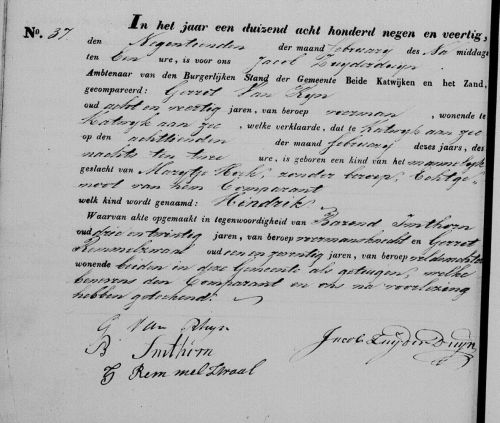 No. 37. In het jaar een duizend acht honderd negen en veertig,
den Negentienden der maand februarij des Na middags
ten Een ure, is voor ons Jacob Zuyderduyn,
Ambtenaar van den Burgerlijken Stand der Gemeente Beide Katwijken en het Zand,
gecompareerd: Gerrot Van Ryn
oud acht en veertig jaren, van beroep voerman, wonende te
Katwyk aan Zee, welke verklaarde, dat te Katwyk aan Zee
op den achttienden der maand februarij dezes jaars, des
nachts ten twee ure, is geboren een kind van het mannelyk
geslacht van Marytje Hoek, zonder beroep, Echtge-
noot van hem Comparant
welk kind wordt genaamd: Hendrik
Waarvan akte opgemaakt in tegenwoordigheid van Barend Imthorn
oud drie en twintig jaren, van beroep voermansknecht en Gerrot
Remmelzwaal oud een en zeventig jaren, van beroep veldwachter
wonende beiden in deze Gemeente als getuigen, welke
benevens den Comparant en ons na voorlezing
hebben geteekend.
G Van Rhyn
B Imthorn
Jacob Zuyderduyn
G Remmelzwaal